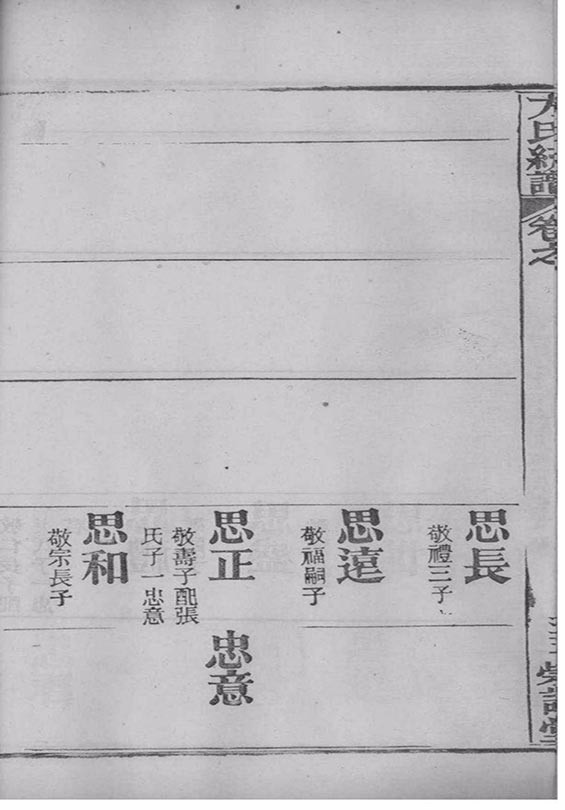 方氏統譜
卷之
思長
敬禮三子
思遠
敬福嗣子
思正
敬壽子配張
氏子一忠意
忠意
思和
敬宗長子